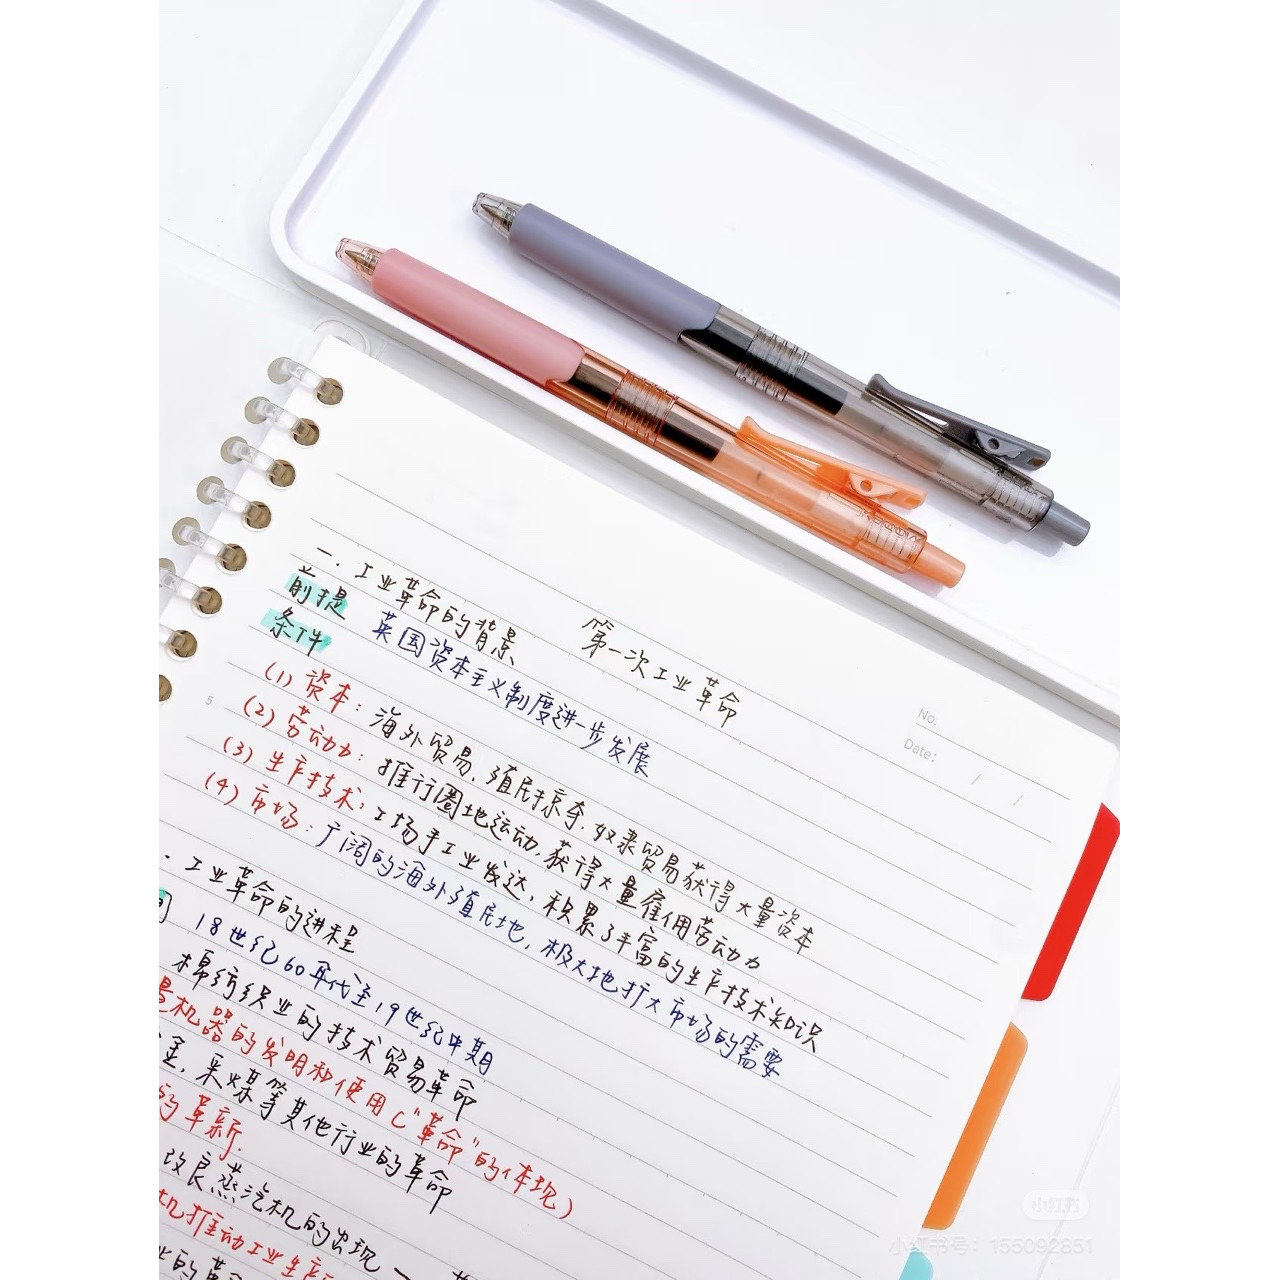 第一次工业革命
No.
Date: / /
一.工业革命的背景
前提 英国资本主义制度进一步发展
条件
(1) 资本: 海外贸易.殖民掠夺.奴隶贸易获得大量资本
(2) 劳动力: 推行圈地运动,获得大量雇佣劳动力
5
(3) 生产技术: 工场手工业发达, 积累了丰富的生产技术知识
(4) 市场: 广阔的海外殖民地, 极大地扩大市场的需要
工业革命的进程
18世纪60年代至19世纪中期
棉纺织业的技术贸易革命
机器的发明和使用 (“革命”的体现)
采煤等其他行业的革命
的革新.
改良蒸汽机的出现
推动工业生产
小红书
小红书号: 155092851